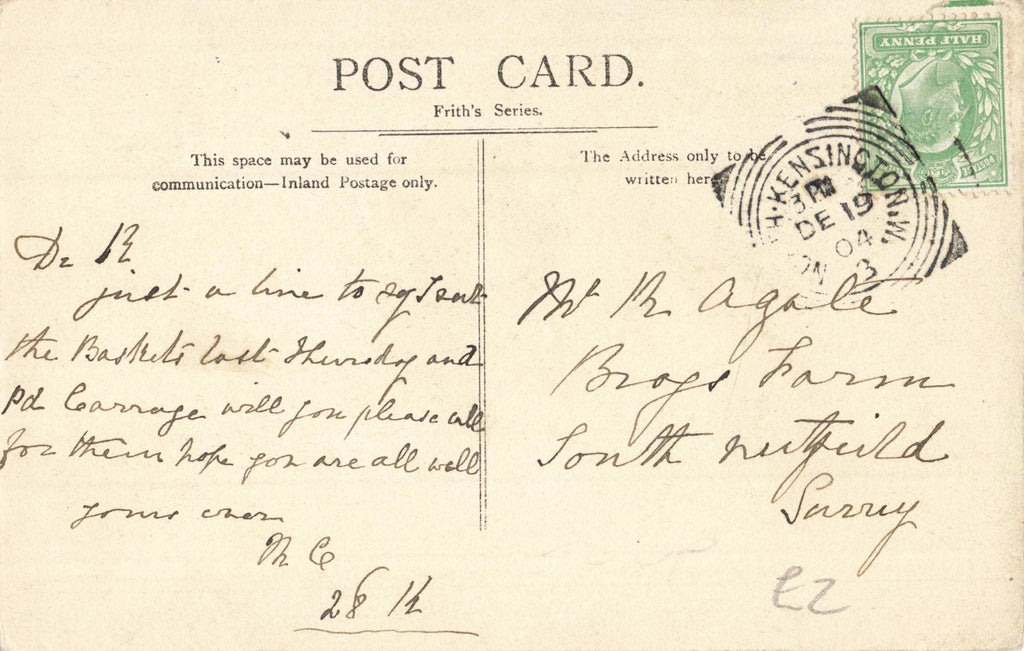 POST CARD.
Frith's Series.
This space may be used for
communication—Inland Postage only.
The Address only to be
written here
HALF PENNY
H. KENSINGTON. W.
3 PM
DE 19
04
3
Dr R
just a line to say I sent
the Baskets last Thursday and
Pd Carrage will you please call
for them hope you are all well
yours ever
M C
28 R
Mr R Agate
Brogs Farm
South Nutfield
Surry
£2